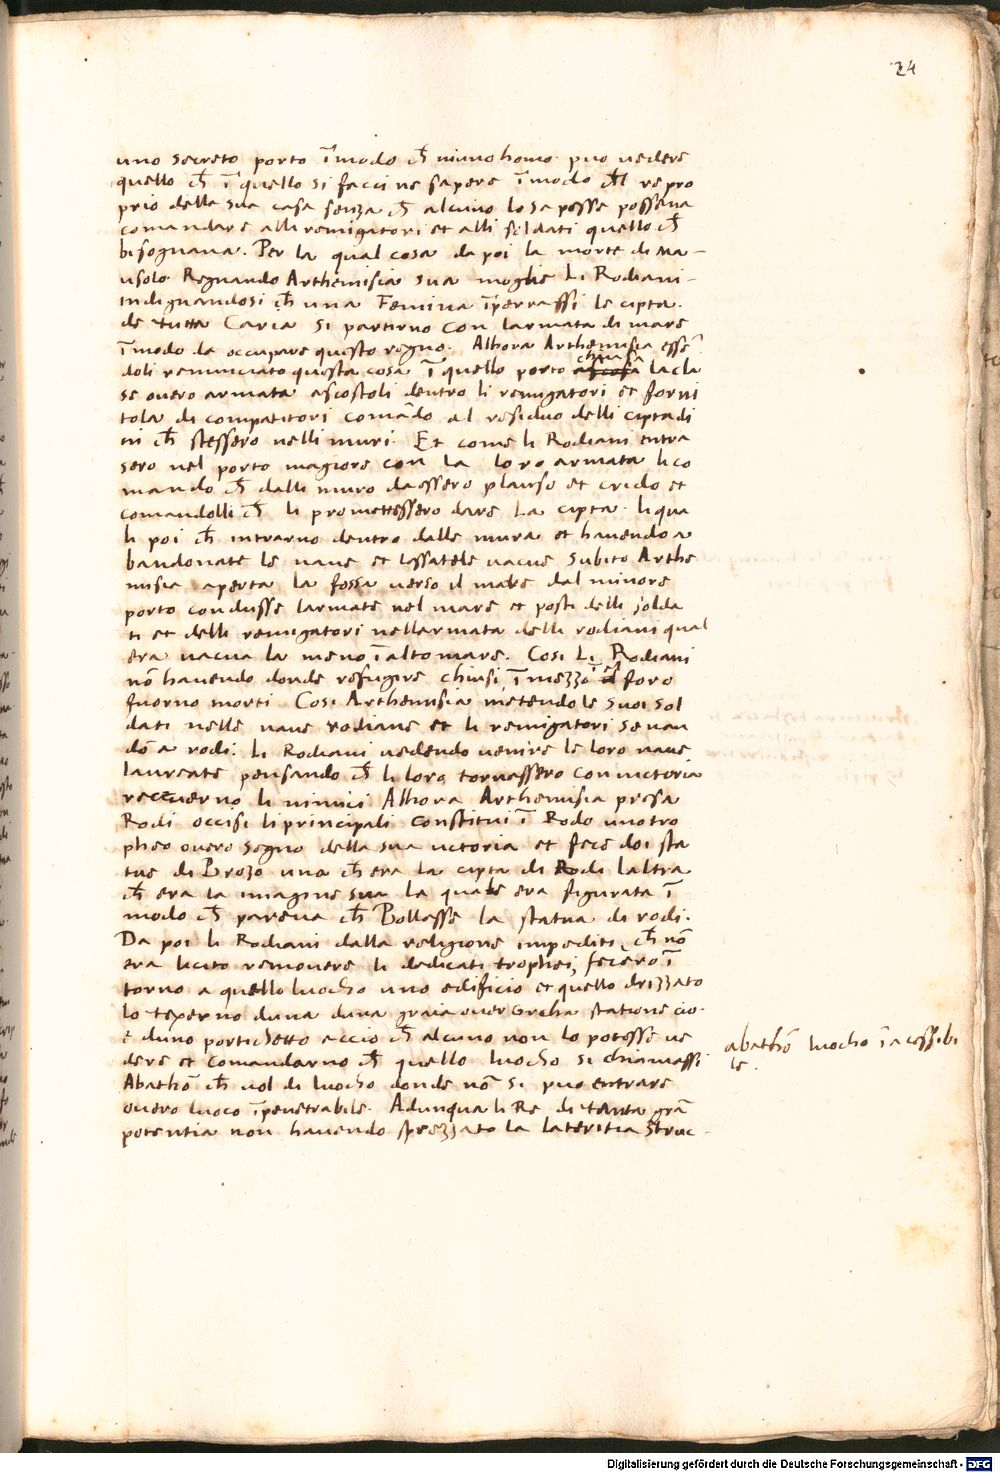 24
uno secreto porto ī modo ch̄ niuno homo può vedere
quello ch̄ ī quello si facci ne sapere ī modo ch̄l re pro
prio della sua casa senza ch̄ alcuno lo sa posse posseva
comandare alli remigatori et alli soldati quello ch̄
bisognava. Per la qual cosa da poi la morte di Ma-
usolo Regnando Arthemisia sua moglie Li Rodiani-
indignandosi ch̄ una Femina īperrassi le cipta.
de tutta Caria si partirno con larmata di mare
ī modo da occupare questo regno. Alhora Arthemisia essē
doli renunciato questa cosa ī quello porto chiusa la cla
se overo armata ascostoli dentro li remigatori et forni
tola di compatitori comādo al residuo delli ciptadi
ni ch̄ stessero nelli muri. Et come li Rodiani entra
sero nel porto magiore con la loro armata li co
mando ch̄ dalli muro daessero plauso et crido et
comandolli ch̄ li promettessero dare la cipta. li qua
li poi ch̄ intrarno dentro dalle mura et havendo a
bandonate le nave et lessatele vacue subito Arthe
misia aperta la fossa verso il mare dal minore
porto condusse larmata nel mare et posti delli solda
ti et delli remigatori nellarmata delli rodiani qual
era vacua la meno ī alto mare. Cosi Li Rodiani
nō havendo donde refugire chiusi ī mezzo el foro
fuorno morti Cosi Arthemisia metendo le suoi sol
dati nelle nave rodiane et li remigatori se nan
dō a rodi. Li Rodiani vedendo venire le loro nave
laureate pensando ch̄ li loro tornassero con victoria
receverno li nimici Alhora Arthemisia presa
Rodi occisi li principali constitui ī Rodo uno tro
pheo overo segno della sua victoria et fece doi sta
tue di Brozo una ch̄ era la cipta di Rodi laltra
ch̄ era la imagine sua la quale era figurata ī
modo ch̄ pareva ch̄ Bollasse la statua di rodi.
Da poi li Rodiani dalla religione impediti ch̄ nō
era licito removere li dedicati trophei, fecero ī
torno a quello luocho uno edificio et quello drizzato
lo texerno duna duna graia over Grecha statione cio.
e duno portichetto accio ch̄ alcuno non lo potesse ve
dere et comandarno ch̄ quello luocho si chiamassi
Abathō ch̄ vol di luocho donde nō si può entrare
overo luoco īpenetrabile. Adunqua li Re di tanta grā
potentia non havendo sprezzato la lateritia struc-
abathō luocho īacessibi
le.
Digitalisierung gefördert durch die Deutsche Forschungsgemeinschaft - DFG